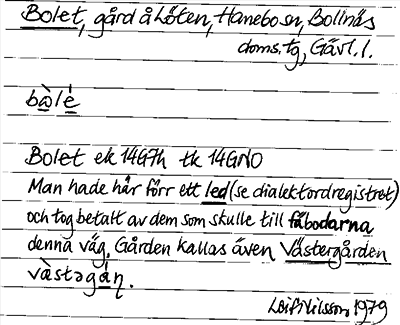 Bolet, gård å Höten, Hanebo sn, Bollnäs
doms. tg, Gävl. l.
bὰlé
Bolet ek 14G7h tk 14GNO
Man hade här förr ett led (se dialektordregistret)
och tog betalt av dem som skulle till fäbodarna
denna väg. Gården kallas även Västergården
væ̀stəgáɳ.
Leif Nilsson 1979